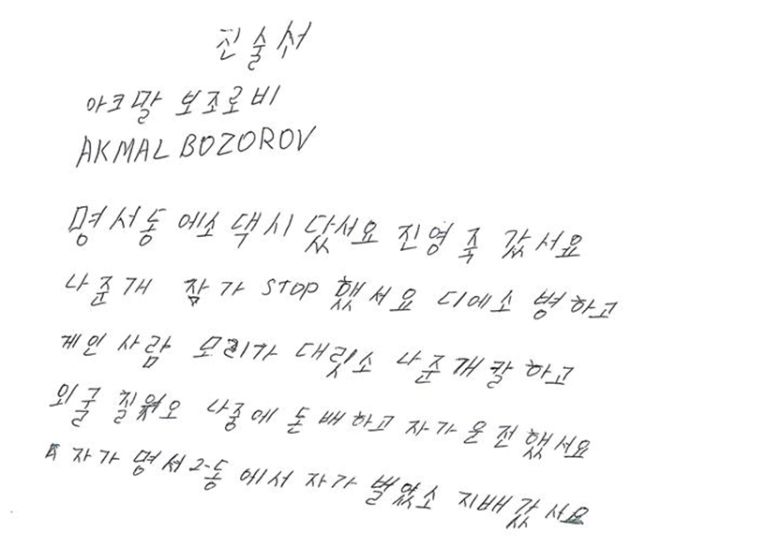 진술서
아크말 보조로비
AKMAL BOZOROV
명서동 에소 댁시 닸서요 진영 죽 갔서요
나준개 잠가 STOP 했서요 디에소 병하고
게인 사람 모리가 대릿소 나준개 칼 하고
외굴 질웠오 나중에 돈 배하고 자가 운전 했서요
자가 명서 2-동 에서 자가 벌았소 지배 갔서요